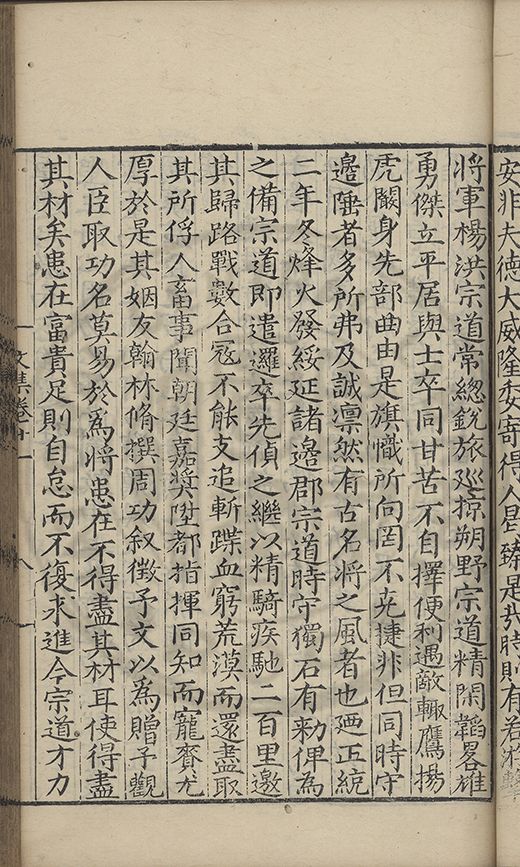 安非夫德大威隆委寄得人曷臻是哉時則有若游擊
將軍楊洪宗道常緫銳旅廵掠朔野宗道精閑韜畧雄
勇傑立平居與士卒同甘苦不自擇便利遇敵輙鷹揚
虎闞身先部曲由是旗幟所向罔不克捷非但同時守
邉陲者多所弗及誠凛然有古名將之風者也廼正統
二年冬烽火發綏延諸邉郡宗道時守獨石有勑俾為
之備宗道即遣邏卒先偵之繼以精騎疾馳二百里邀
其歸路戰數合寇不能支追斬蹀血窮荒漠而還盡取
其所俘人畜事聞朝廷嘉奬陞都指揮同知而寵賚尤
厚於是其姻友翰林脩撰周功叙徵予文以爲贈予觀
人臣取功名莫易於爲將患在不得盡其材耳使得盡
其材矣患在富貴足則自怠而不復求進今宗道才力
文集卷十一 八